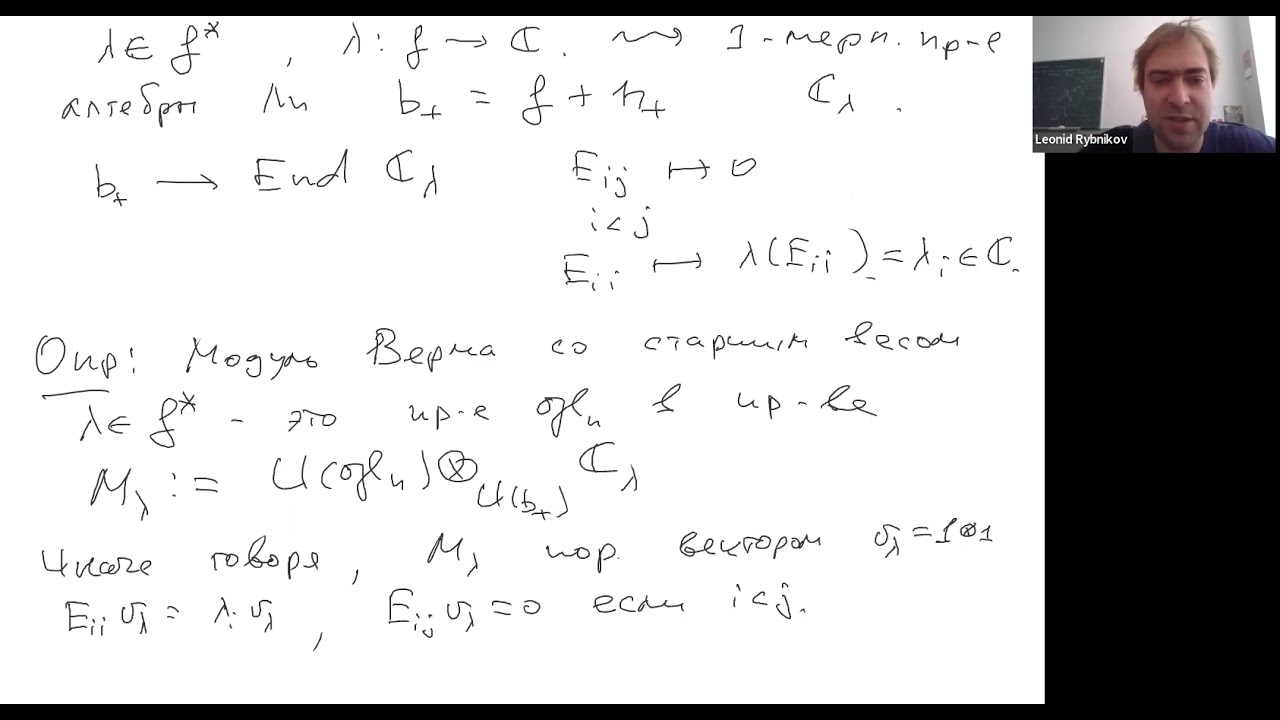 λ ∈ 𝔥* , λ : 𝔥 → ℂ. ⇝ 1-мерн. пр-е
алгебры Ли b₊ = 𝔥 + n₊ ℂ_λ .
b₊ → End ℂ_λ E_ij ↦ 0
i<j
E_ii ↦ λ(E_ii) = λ_i ∈ ℂ.
Опр: Модуль Верма со старшим весом
λ ∈ 𝔥* - это пр-е 𝔤𝔩_n в пр-ве
M_λ := U(𝔤𝔩_n) ⊗_U(b₊) ℂ_λ
Иначе говоря, M_λ пор. вектором v_λ = 1⊗1
E_ii v_λ = λ_i v_λ , E_ij v_λ = 0 если i<j.
Leonid Rybnikov